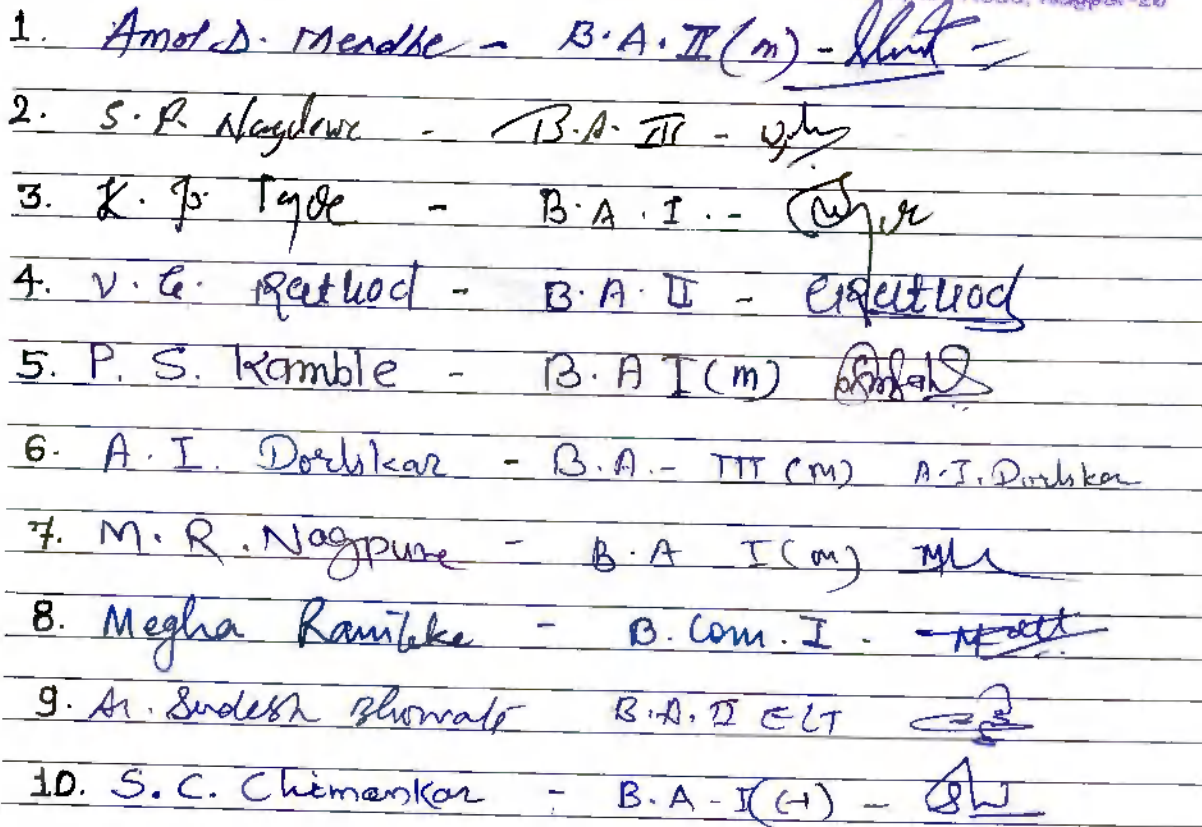 Nagpur-20
1. Amol D. Mendhe - B.A. II (m) -
2. S. R. Nagdewe - B.A. III -
3. K. P. Tyde - B.A. I. -
4. V. G. Rathod - B.A. II - Rathod
5. P. S. Kamble - B.A I (m)
6. A. I. Dorlikar - B.A. - III (m) A.I. Dorlikar
7. M. R. Nagpure - B.A I (m)
8. Megha Ramteke - B. Com. I. -
9. Sudesh Bhowate B.A. II ELT
10. S. C. Chimankar - B.A - I -